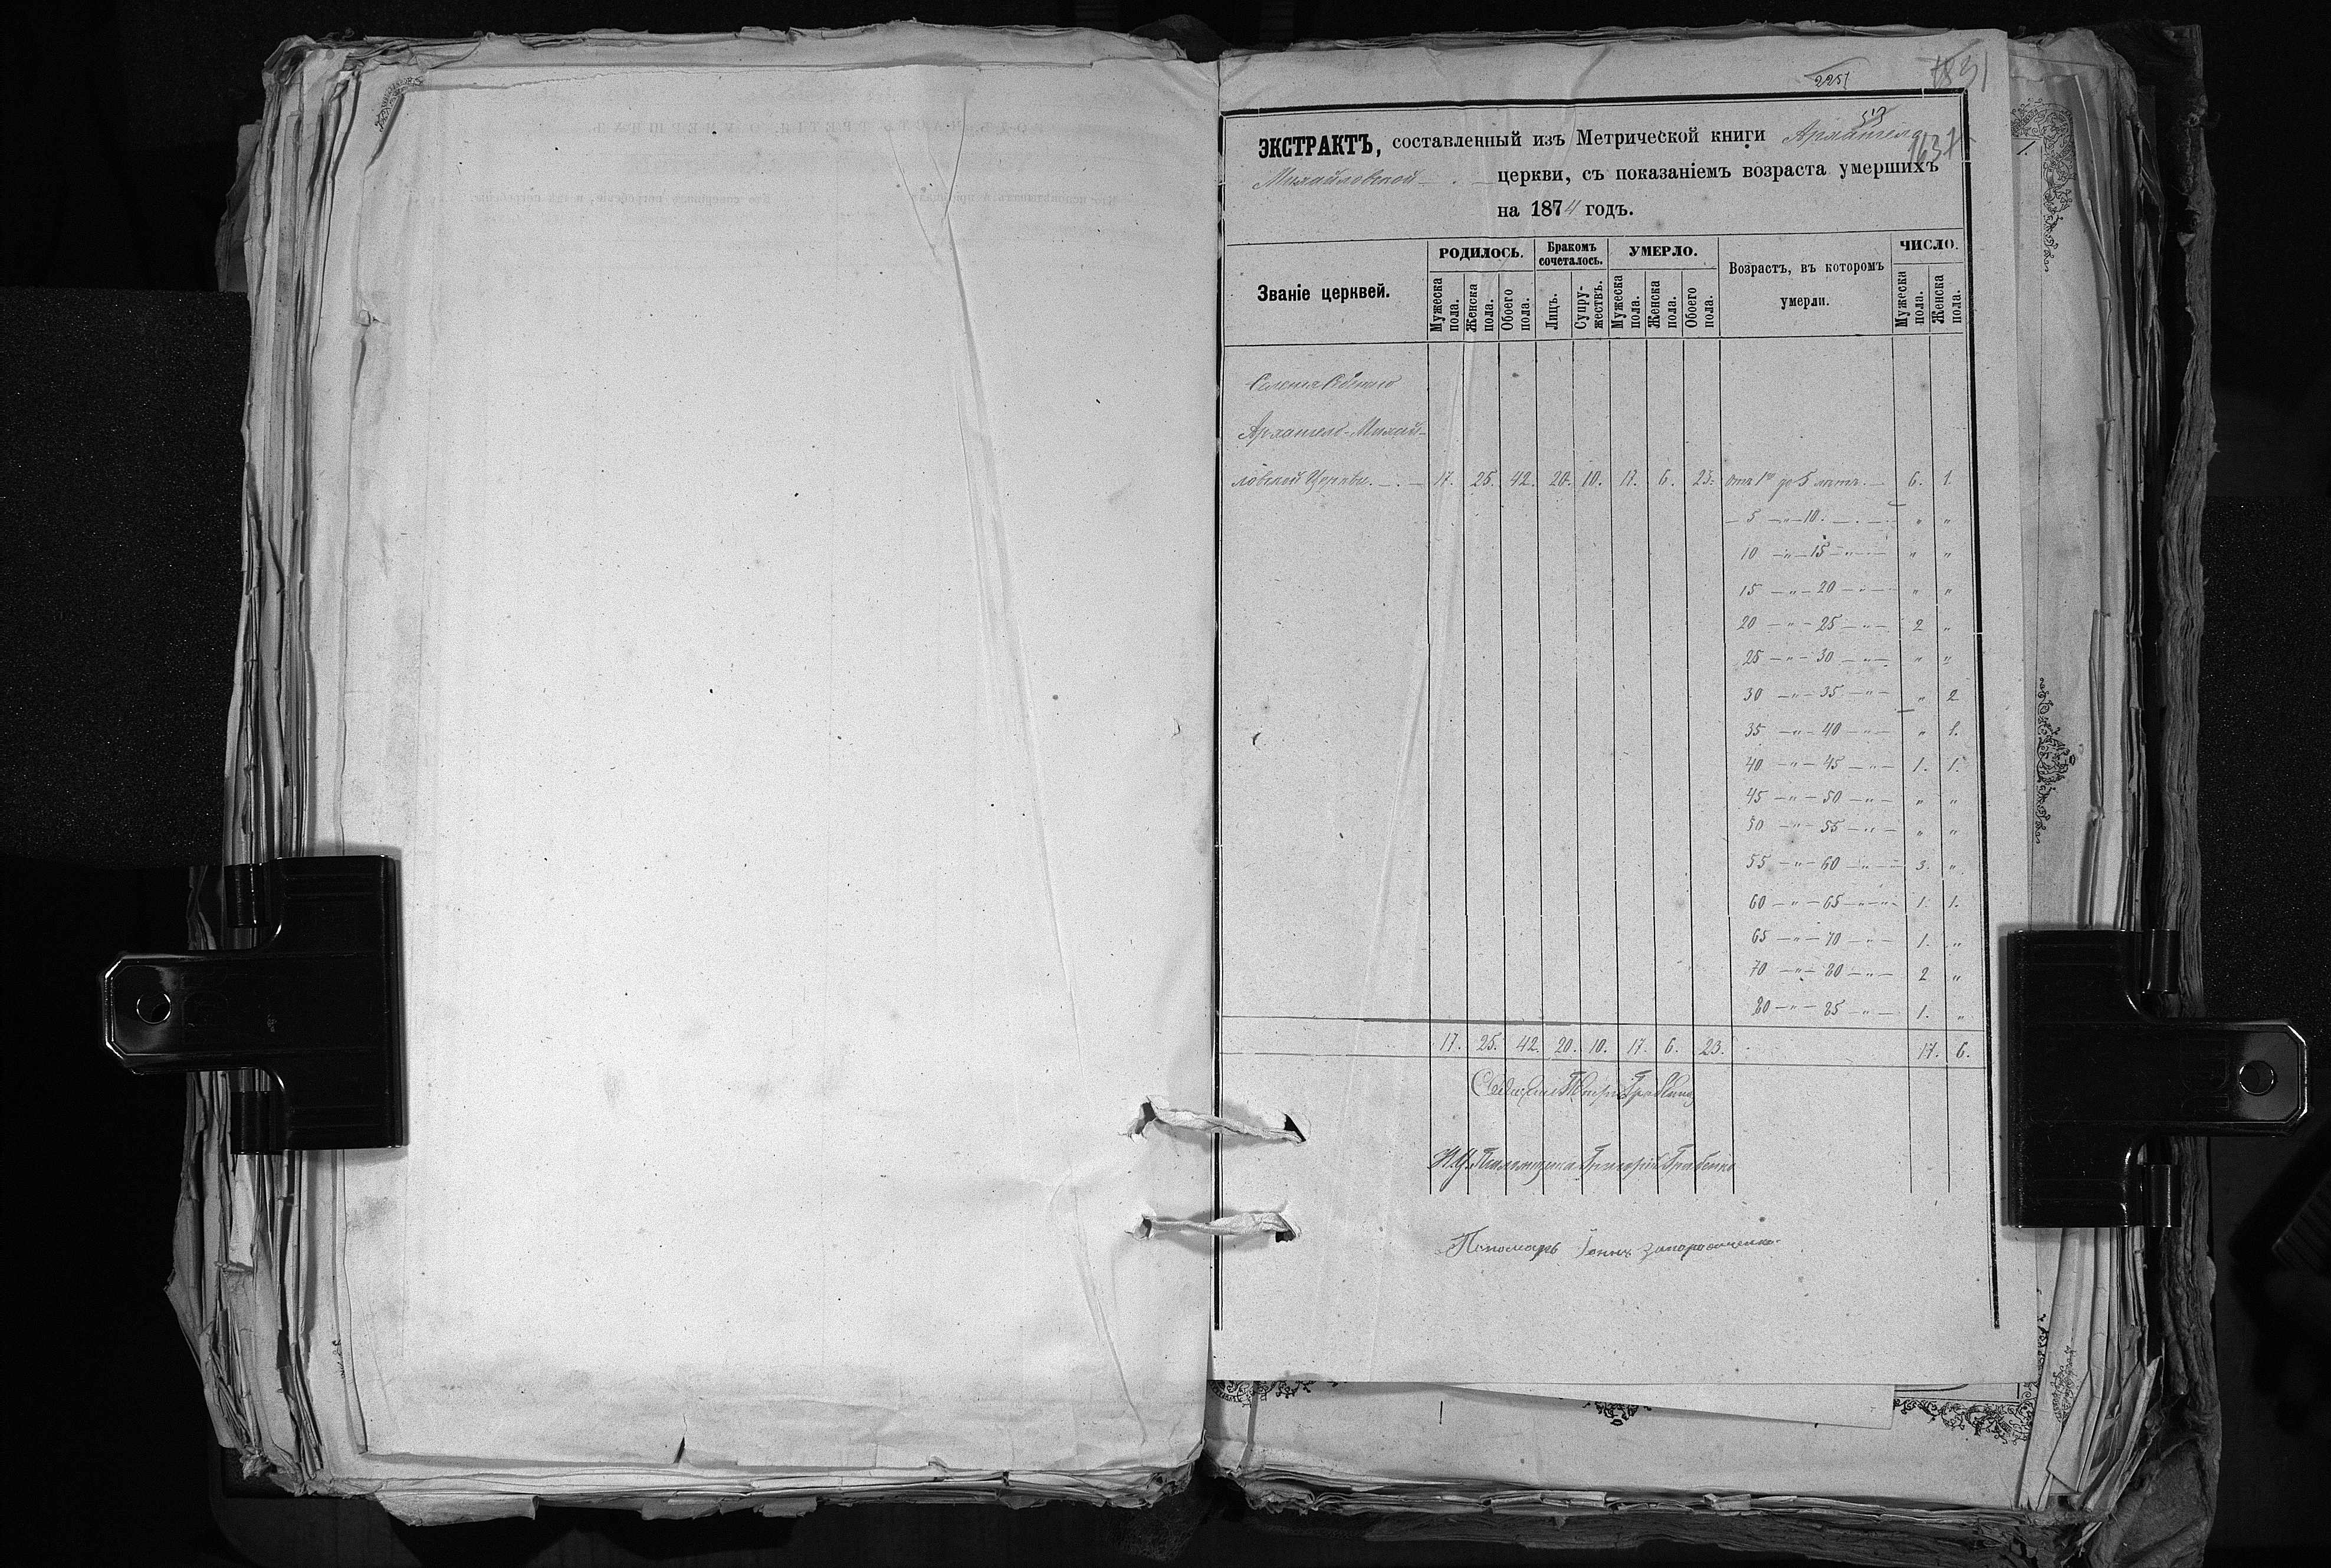 2251
ЭКСТРАКТЪ, составленный изъ Метрической книги Архангело
Михайловской церкви, съ показаніемъ возраста умершихъ
на 1874 годъ.
Званіе церквей.
РОДИЛОСЬ.
Мужеска пола.
Женска пола.
Обоего пола.
Бракомъ сочеталось.
Лицъ.
Супружествъ.
УМЕРЛО.
Мужеска пола.
Женска пола.
Обоего пола.
Возрастъ, въ которомъ умерли.
ЧИСЛО.
Мужеска пола.
Женска пола.
Архангело-Михай-
ловской Церкви. 17. 25. 42. 20. 10. 17. 6. 23. отъ 1го до 5 летъ. 6. 1.
5 — „ — 10. „ „
10 — „ — 15 — „ — „ „
15 — „ — 20 — „ — „ „
20 — „ — 25 — „ — 2 „
25 — „ — 30 — „ — „ „
30 — „ — 35 — „ — „ 2
35 — „ — 40 — „ — „ 1.
40 — „ — 45 — „ — 1. 1.
45 — „ — 50 — „ — „ „
50 — „ — 55 — „ — „ „
55 — „ — 60 — „ — 3. „
60 — „ — 65 — „ — 1. 1.
65 — „ — 70 — „ — 1. „
70 — „ — 80 — „ — 2 „
80 — „ — 85 — „ — 1. „
17. 25. 42. 20. 10. 17. 6. 23. 17. 6.
И. Д. Псаломщика Григорій Грабенко
Пономарь Іоннъ Запорожченко